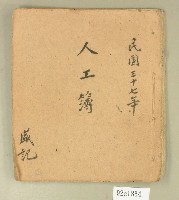 民國三十七年
人工簿
盛記